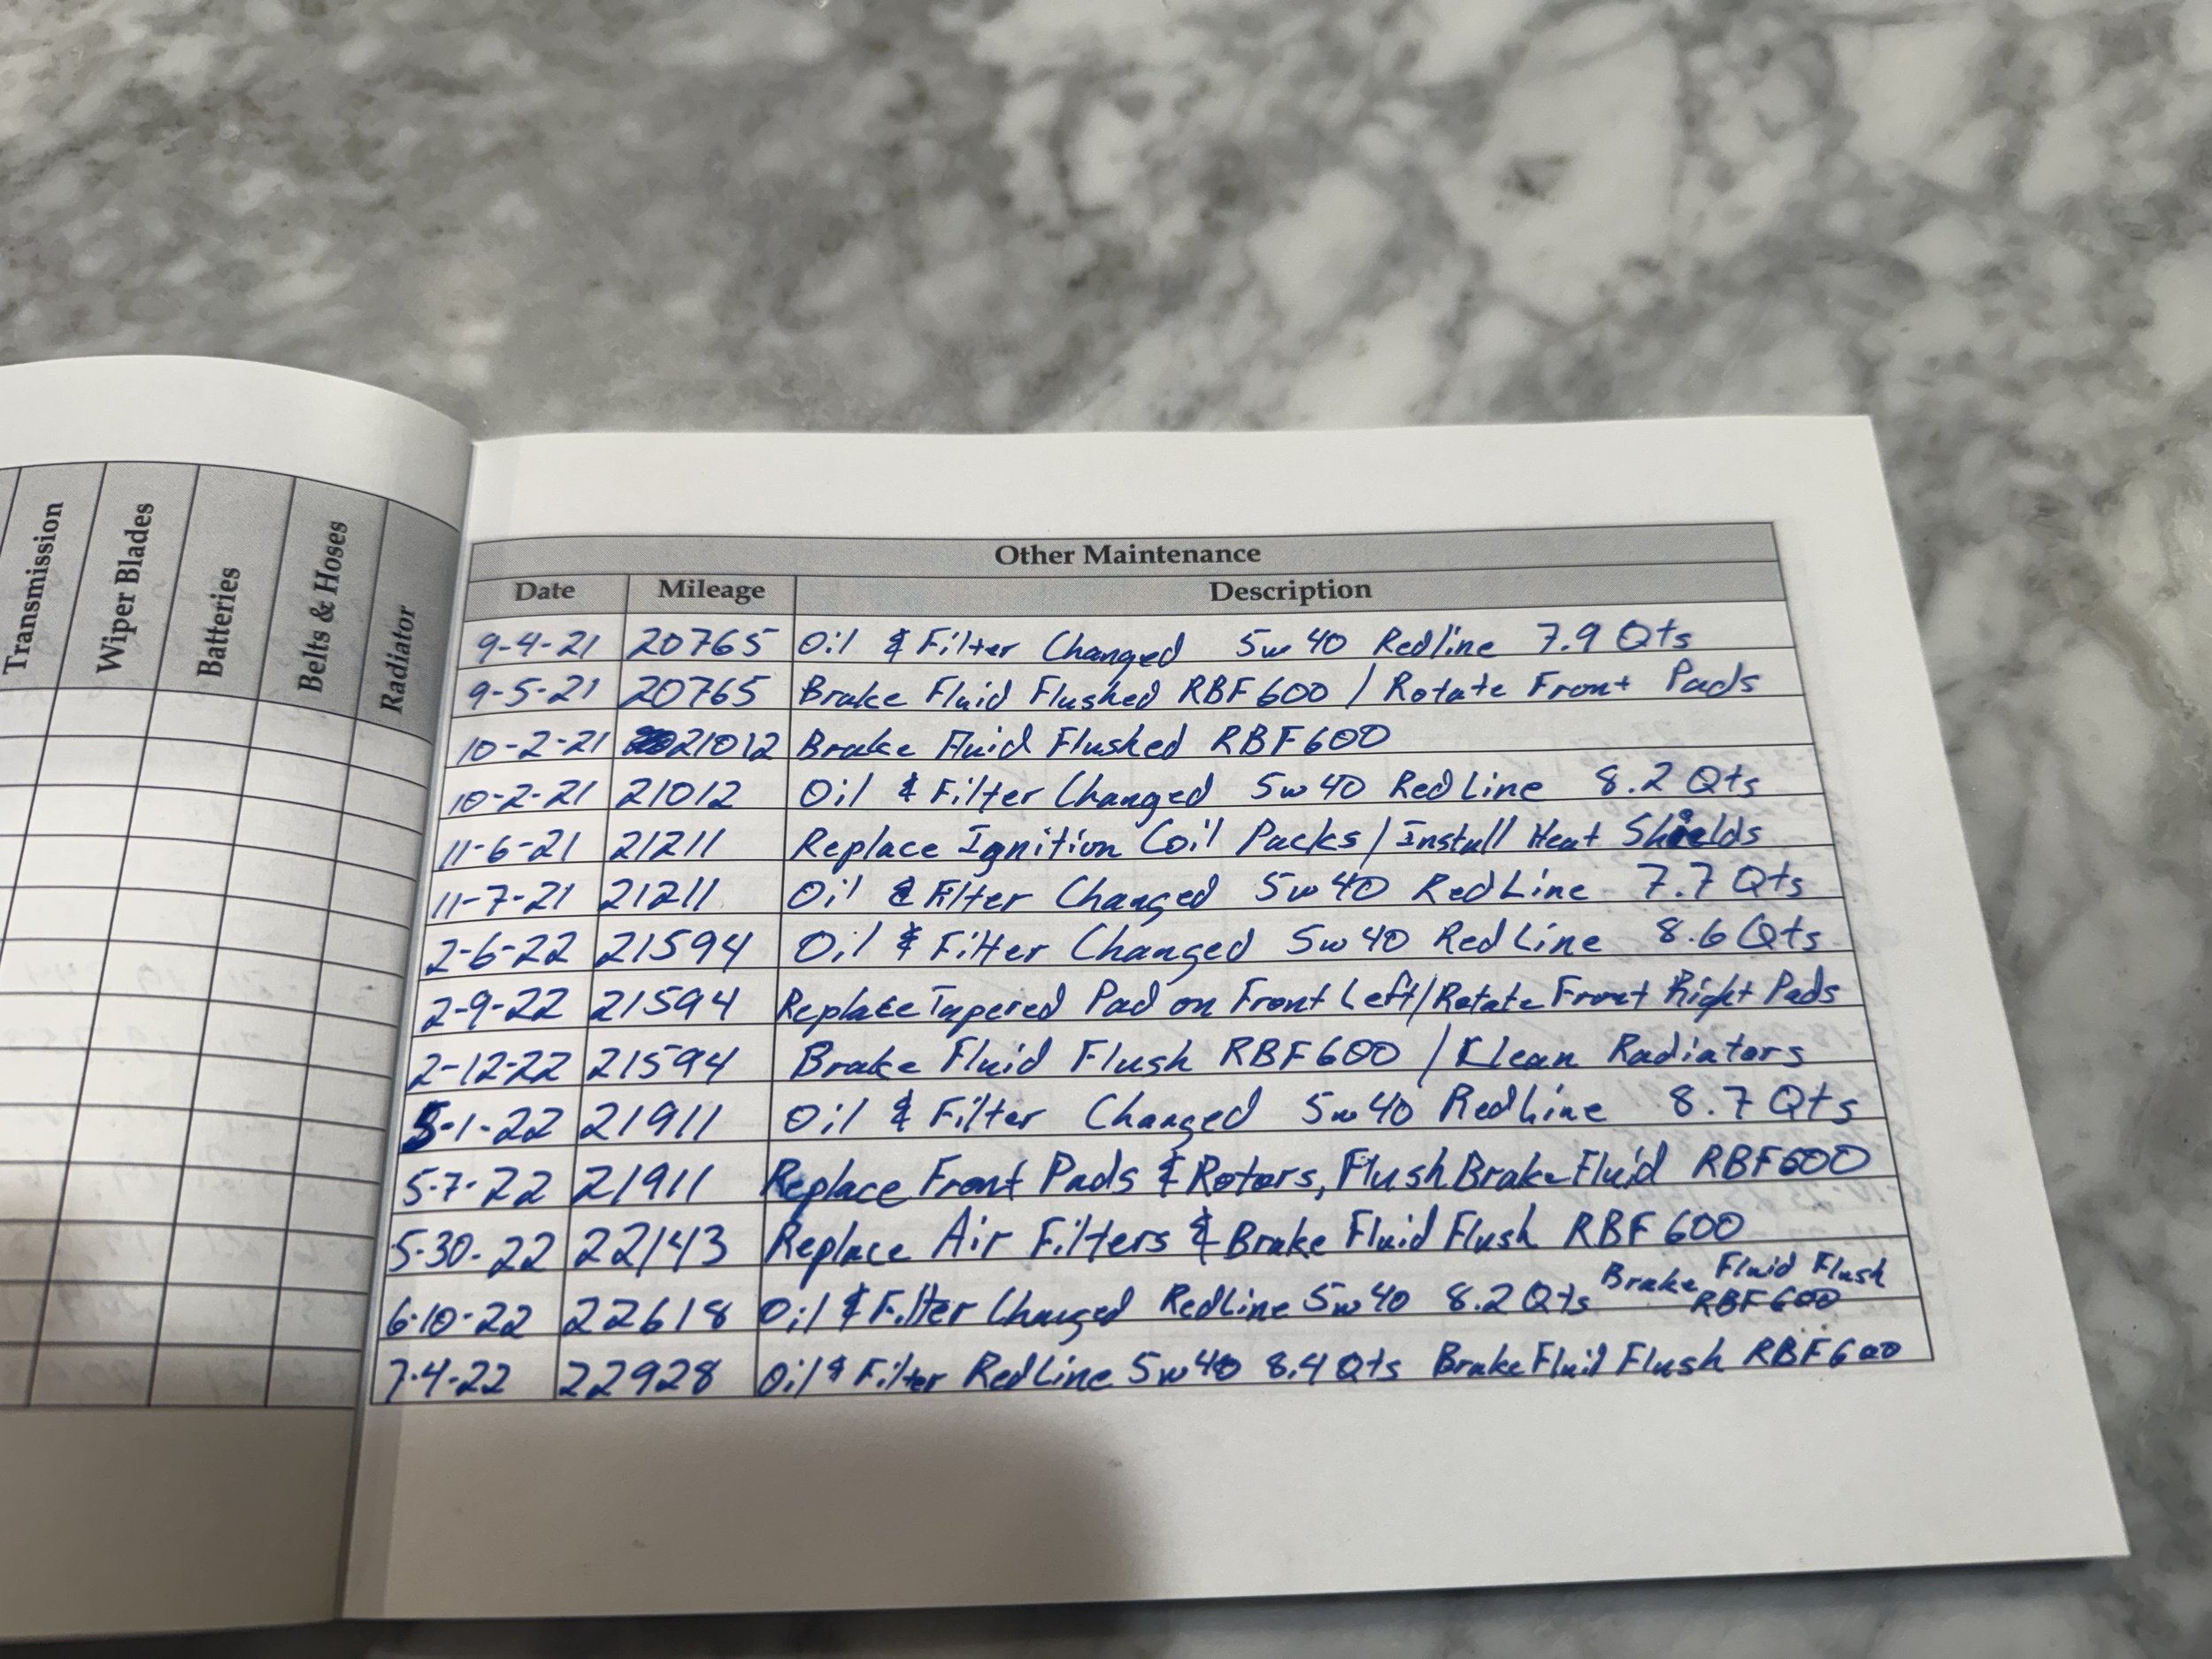 Transmission
Wiper Blades
Batteries
Belts & Hoses
Radiator
Other Maintenance
Date Mileage Description
9-4-21 20765 Oil & Filter Changed 5w40 Redline 7.9 Qts
9-5-21 20765 Brake Fluid Flushed RBF600 / Rotate Front Pads
10-2-21 21012 Brake Fluid Flushed RBF600
10-2-21 21012 Oil & Filter Changed 5w40 RedLine 8.2 Qts
11-6-21 21211 Replace Ignition Coil Packs / Install Heat Shields
11-7-21 21211 Oil & Filter Changed 5w40 RedLine 7.7 Qts
2-6-22 21594 Oil & Filter Changed 5w40 RedLine 8.6 Qts
2-9-22 21594 Replace Tapered Pad on Front Left/Rotate Front Right Pads
2-12-22 21594 Brake Fluid Flush RBF600 / Clean Radiators
5-1-22 21911 Oil & Filter Changed 5w40 RedLine 8.7 Qts
5-7-22 21911 Replace Front Pads & Rotors, Flush Brake Fluid RBF600
5-30-22 22143 Replace Air Filters & Brake Fluid Flush RBF600
6-10-22 22618 Oil & Filter Changed RedLine 5w40 8.2 Qts Brake Fluid Flush RBF600
7-4-22 22928 Oil & Filter RedLine 5w40 8.4 Qts Brake Fluid Flush RBF600